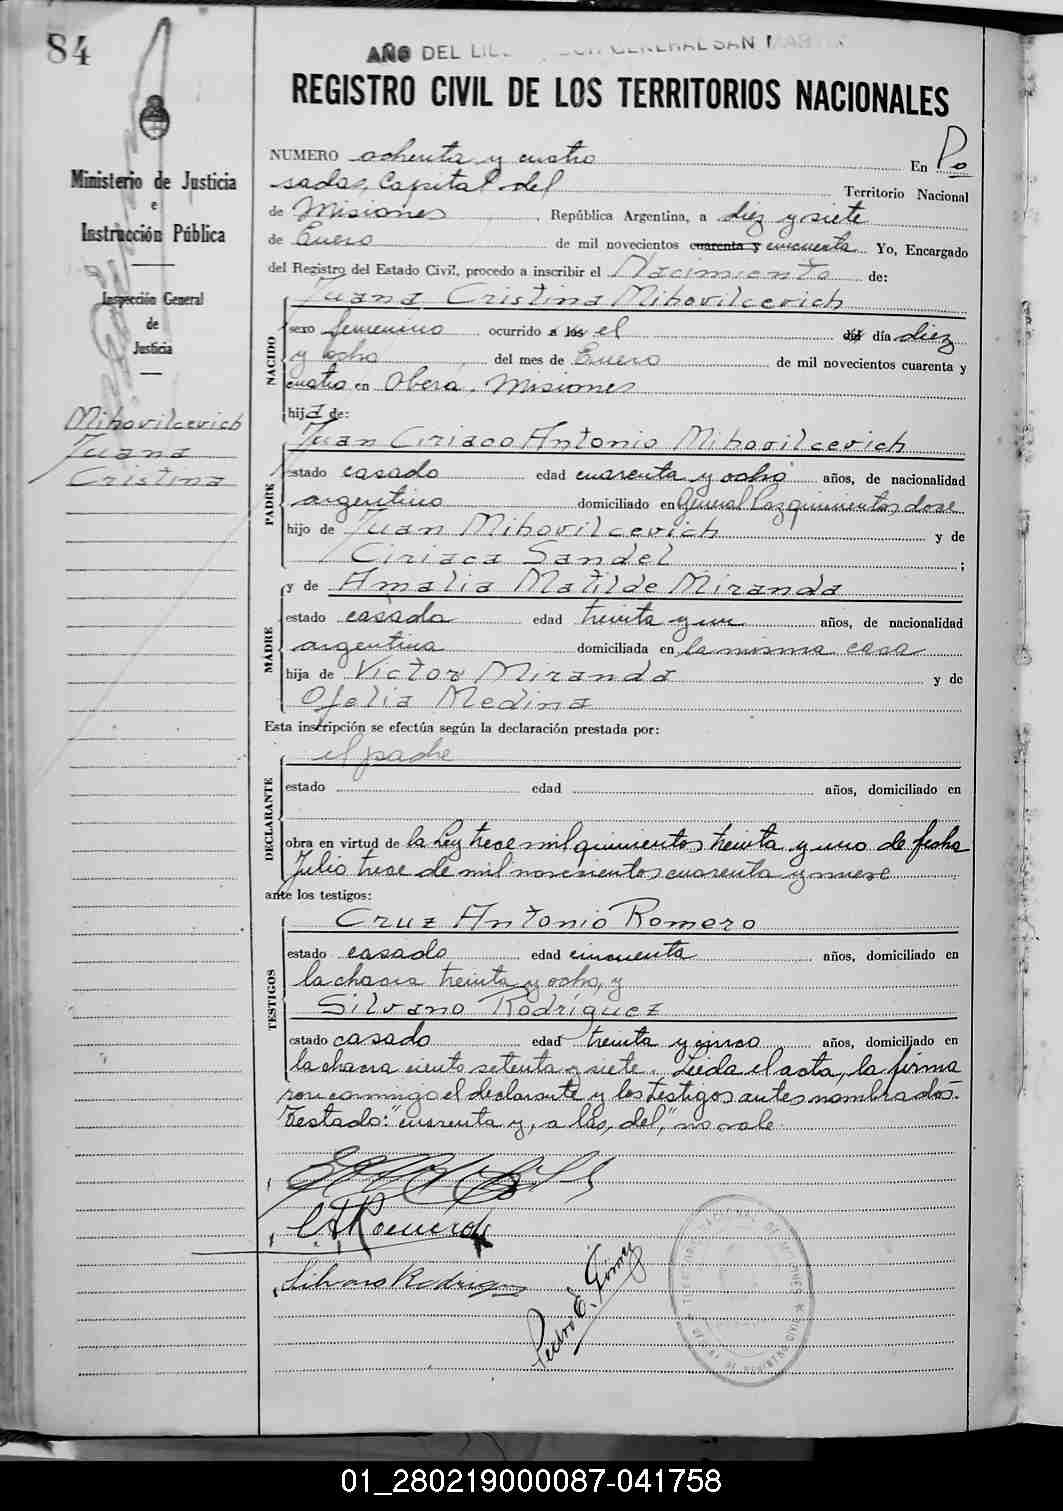 84
AÑO DEL LIBERTADOR GENERAL SAN MARTIN
REGISTRO CIVIL DE LOS TERRITORIOS NACIONALES
Ministerio de Justicia
e
Instrucción Pública
Inspección General
de
Justicia
Mihovilcevich
Juana
Cristina
NUMERO ochenta y cuatro En Po
sadas, Capital del Territorio Nacional
de Misiones, República Argentina, a diez y siete
de Enero de mil novecientos cuarenta y cincuenta Yo, Encargado
del Registro del Estado Civil, procedo a inscribir el Nacimiento de:
NACIDO
Juana Cristina Mihovilcevich
sexo femenino ocurrido a los el del día diez
y ocho del mes de Enero de mil novecientos cuarenta y
cuatro en Oberá, Misiones
hija de:
PADRE
Juan Ciriaco Antonio Mihovilcevich
estado casado edad cuarenta y ocho años, de nacionalidad
argentino domiciliado en General Paz quinientos doce
hijo de Juan Mihovilcevich y de
Ciriaca Sandel ;
y de Amalia Matilde Miranda
MADRE
estado casada edad treinta y un años, de nacionalidad
argentina domiciliada en la misma casa
hija de Victor Miranda y de
Ofelia Medina
Esta inscripción se efectúa según la declaración prestada por:
DECLARANTE
el padre
estado edad años, domiciliado en
obra en virtud de la Ley trece mil quinientos treinta y uno de fecha
Julio trece de mil novecientos cuarenta y nueve
ante los testigos:
TESTIGOS
Cruz Antonio Romero
estado casado edad cincuenta años, domiciliado en
la chacra treinta y ocho, y
Silvano Rodríguez
estado casado edad treinta y cinco años, domiciliado en
la chacra ciento setenta y siete. Leida el acta, la firma
ron conmigo el declarante y los testigos antes nombrados.-
Testado: "cuarenta y, a los, del," no vale
C. A. Romero
Silvano Rodriguez
Pedro E. Gómez
01_280219000087-041758